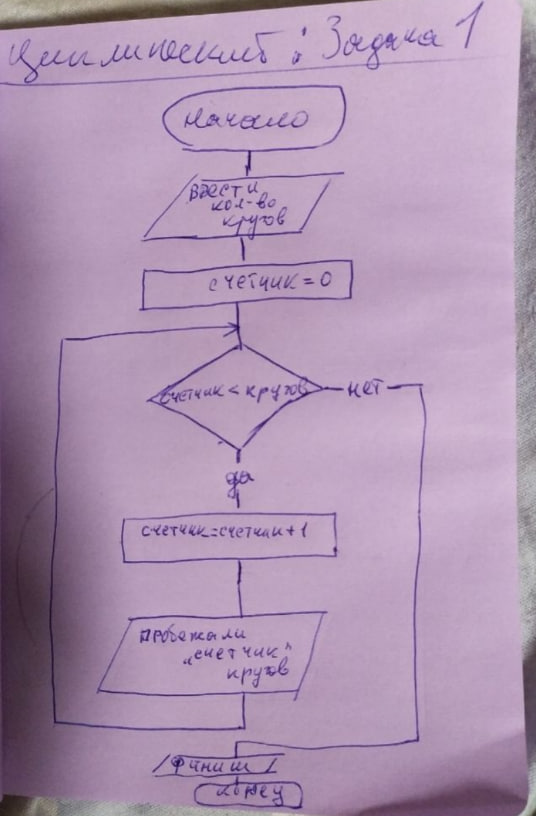 Циклический: Задача 1
Начало
Ввести
кол-во
кругов
счетчик=0
счетчик < кругов
нет
да
счетчик=счетчик+1
пробежали
"счетчик"
кругов
Финиш
конец